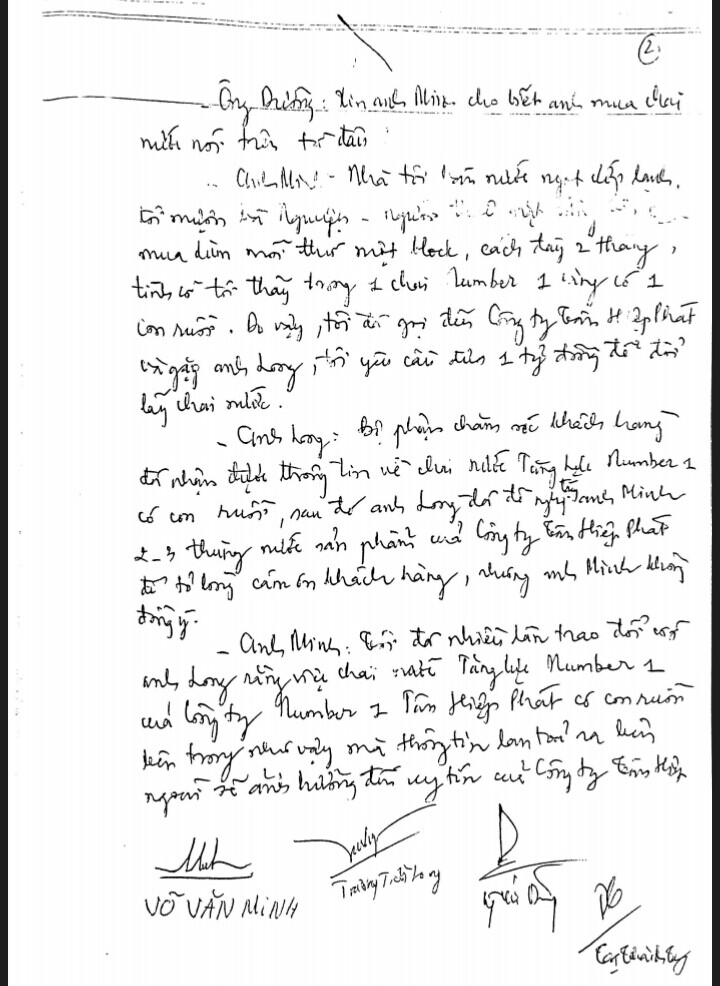 2.
- Ông Dưỡng: Xin anh Minh cho biết anh mua chai
nước nói trên từ đâu
- Anh Minh - Nhà tôi bán nước ngọt ướp lạnh.
tôi mượn bà Nguyện - người
mua dùm mỗi thứ một block, cách đây 2 tháng,
tình cờ tôi thấy trong 1 chai Number 1 cũng có 1
con ruồi. Do vậy, tôi đã gọi đến Công ty Tân Hiệp Phát
và gặp anh Long, tôi yêu cầu đưa 1 tỷ đồng để đổi
lấy chai nước.
- Anh Long: Bộ phận chăm sóc khách hàng
đã nhận được thông tin về chai nước Tăng lực Number 1
có con ruồi, sau đó anh Long đã đề nghị tặng anh Minh
2-3 thùng nước sản phẩm của Công ty Tân Hiệp Phát
để tỏ lòng cám ơn khách hàng, nhưng anh Minh không
đồng ý.
- Anh Minh: Tôi đã nhiều lần trao đổi với
anh Long rằng việc chai nước Tăng lực Number 1
của Công ty Number 1 Tân Hiệp Phát có con ruồi
bên trong như vậy mà thông tin lan toả ra bên
ngoài sẽ ảnh hưởng đến uy tín của Công ty Tân Hiệp
VÕ VĂN MINH
Trương Tiến Long